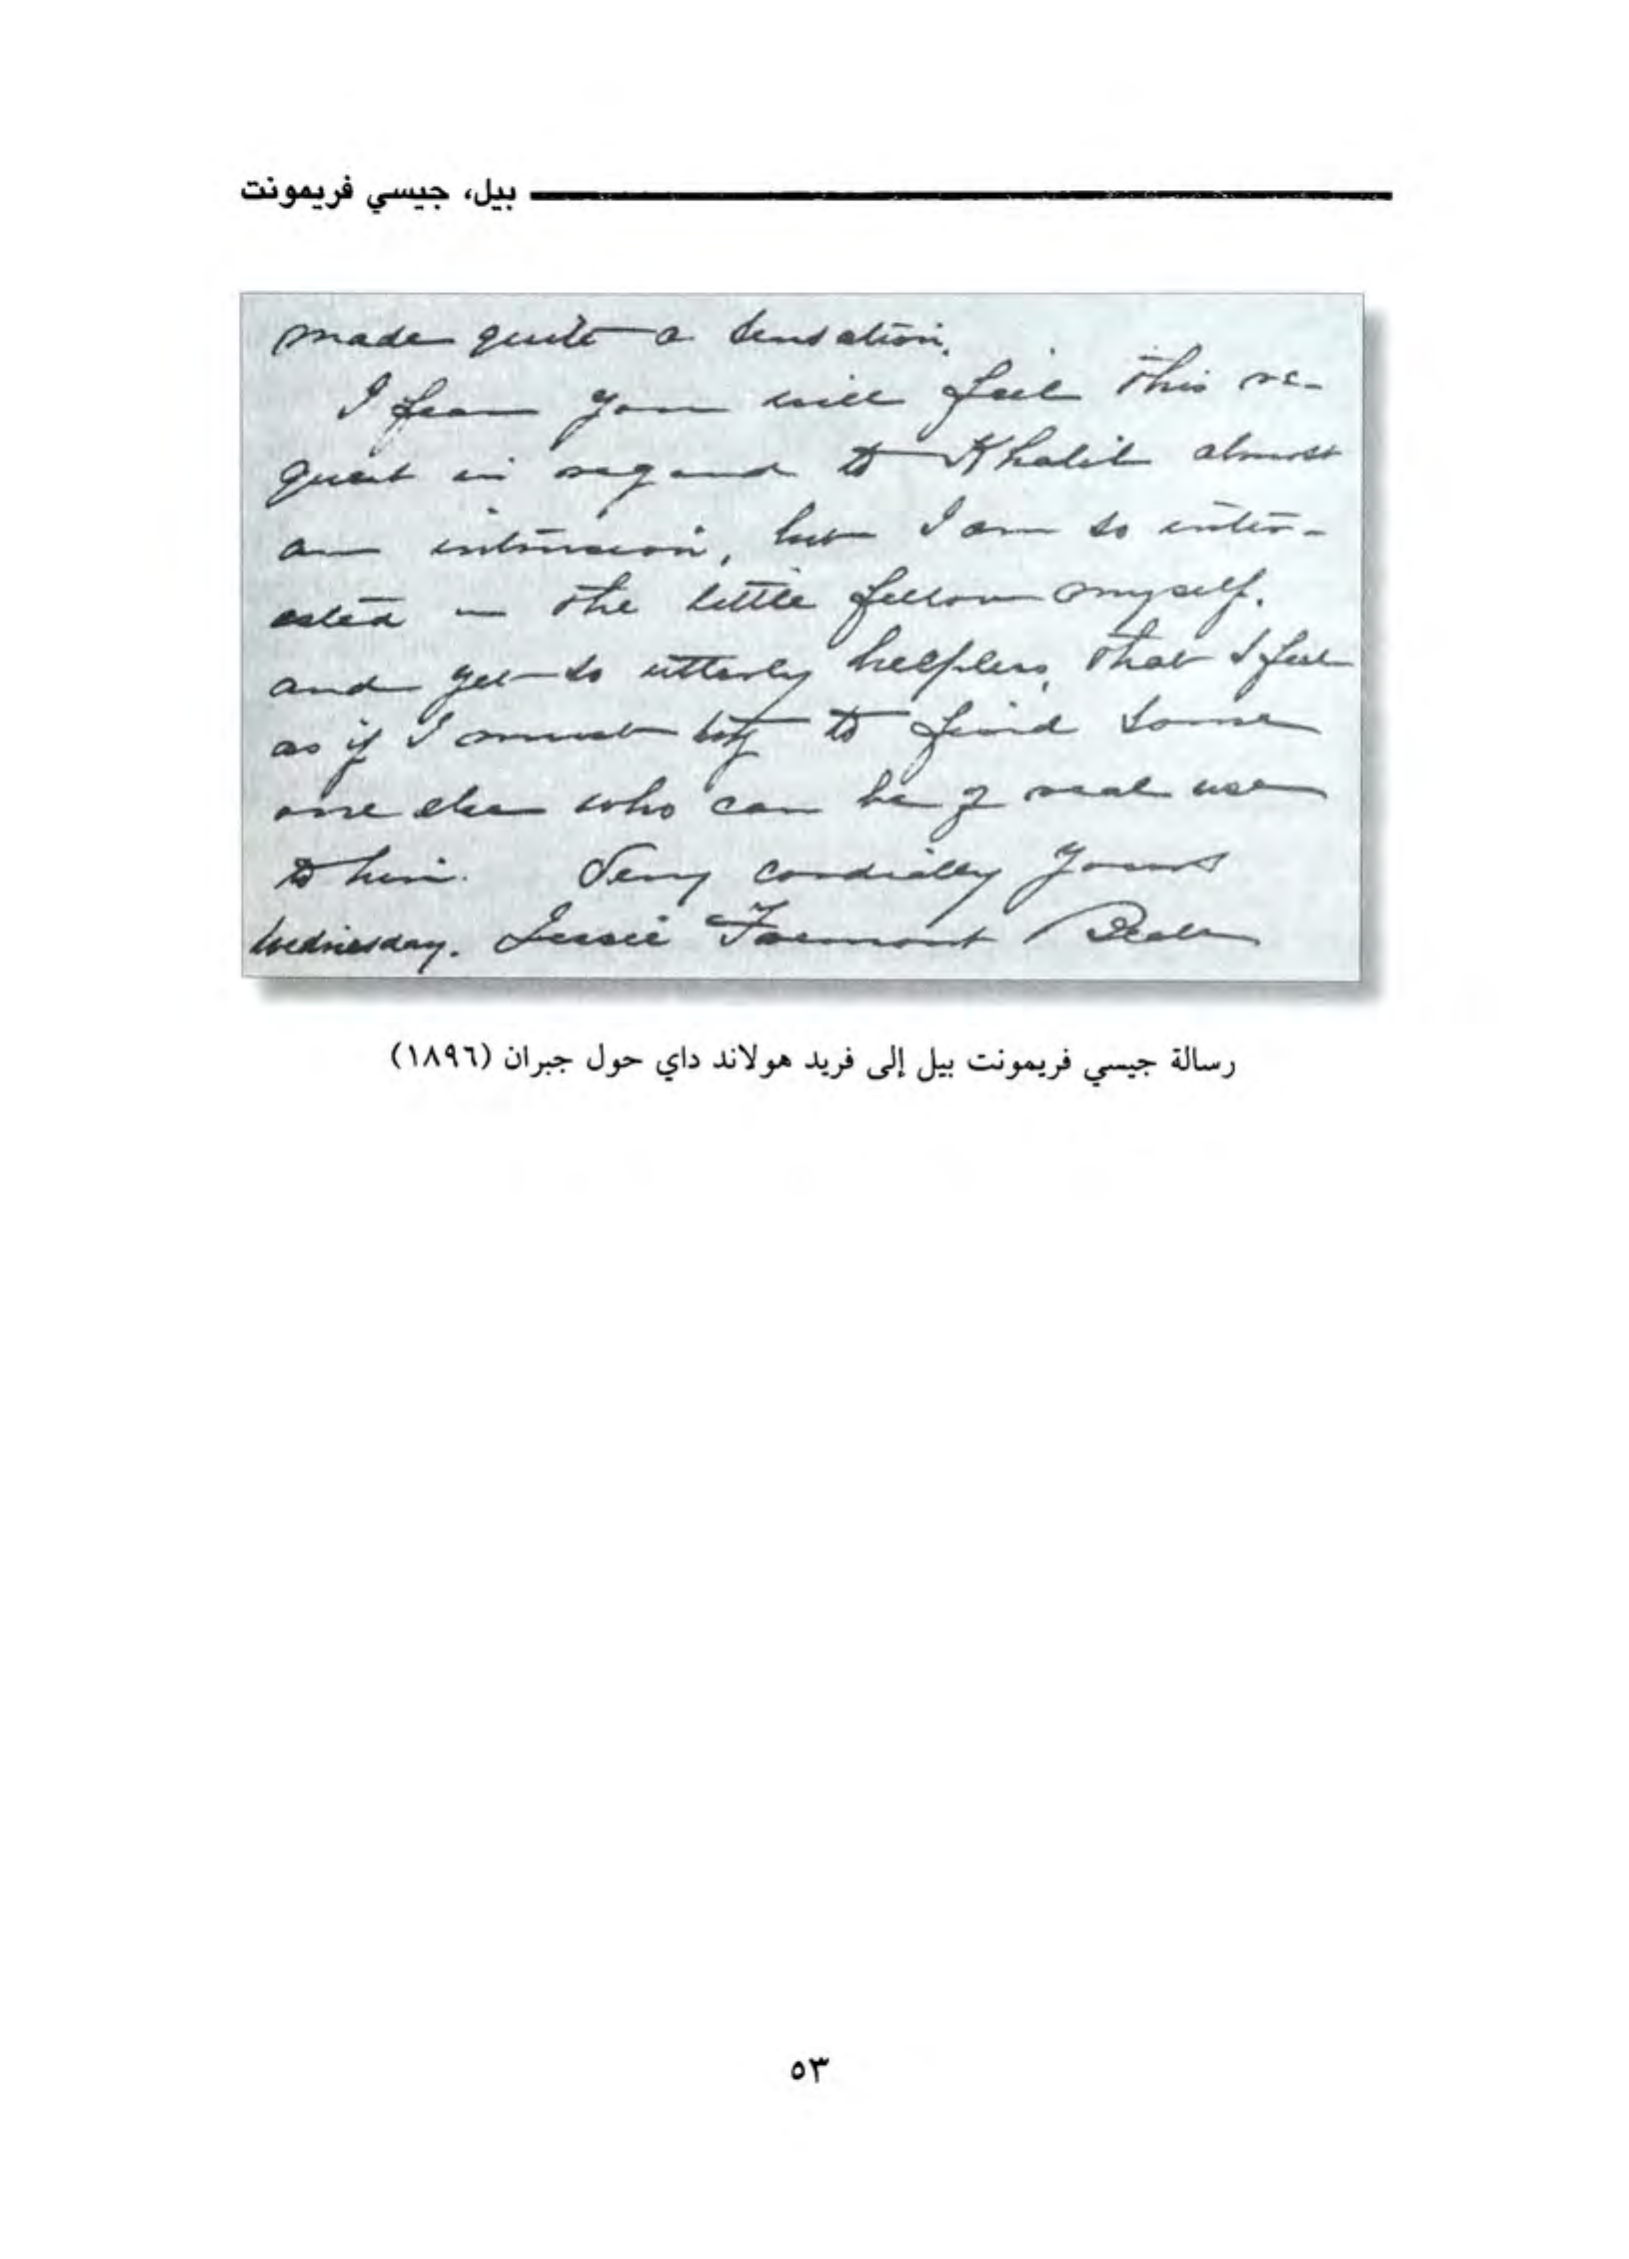 بيل، جيسي فريمونت
made quite a sensation.
I fear you will feel this re-
quest in regard to Khalil almost
an intrusion, but I am so inter-
ested in the little fellow myself,
and yet so utterly helpless, that I feel
as if I must try to find some
one else who can be of real use
to him. Very cordially yours
Wednesday. Jessie Fremont Beale
رسالة جيسي فريمونت بيل إلى فريد هولاند داي حول جبران (١٨٩٦)
٥٣